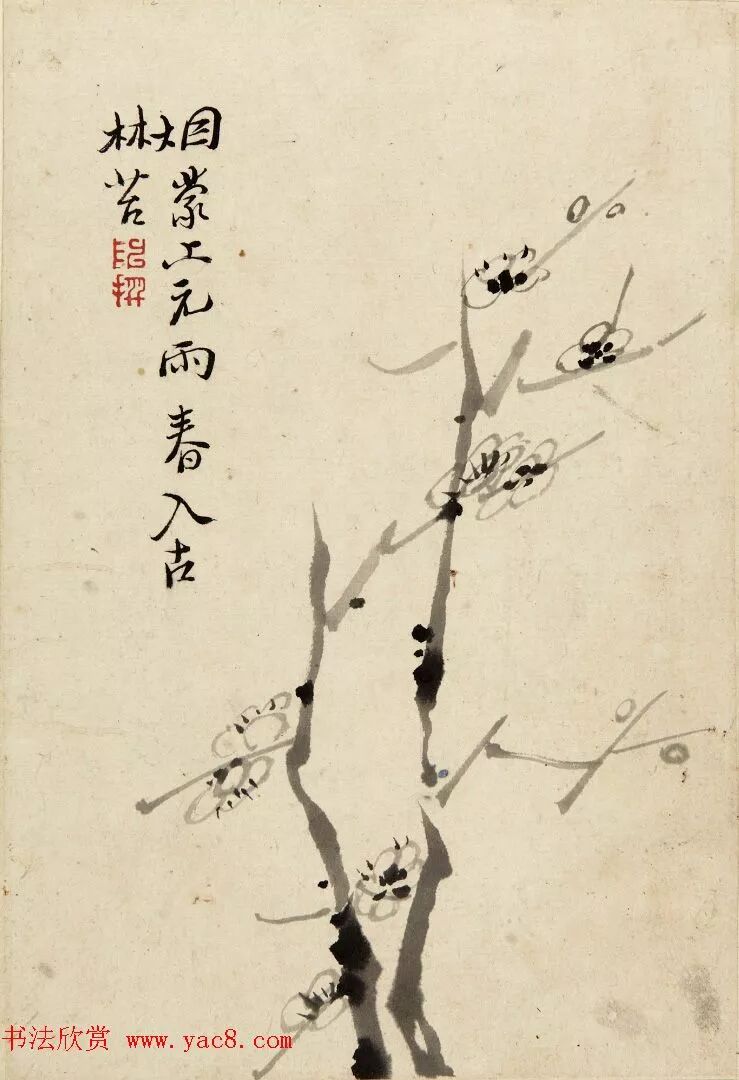 烟蒙上元雨春入古
林苔
书法欣赏 www.yac8.com